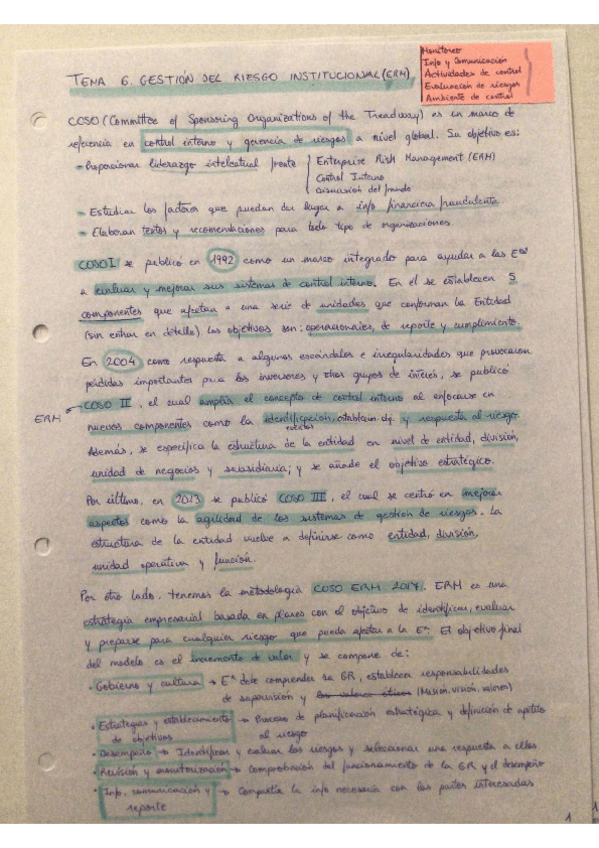 Monitoreo
Info y Comunicación
Actividades de control
Evaluación de riesgos
Ambiente de control
TEMA 6. GESTIÓN DEL RIESGO INSTITUCIONAL (ERM)
COSO (Committee of Sponsoring Organizations of the Treadway) es un marco de
referencia en control interno y gerencia de riesgos a nivel global. Su objetivo es:
- Proporcionar liderazgo intelectual frente
Enterprise Risk Management (ERM)
Control Interno
Disuasión del fraude
- Estudiar los factores que puedan dar lugar a info financiera fraudulenta
- Elaboran textos y recomendaciones para todo tipo de organizaciones.
COSO I se publicó en 1992 como un marco integrado para ayudar a las Eªs
a evaluar y mejorar sus sistemas de control interno. En el se establecen 5
componentes que afectan a una serie de unidades que conforman la Entidad
(sin entrar en detalle) los objetivos son: operacionales, de reporte y cumplimiento.
En 2004 como respuesta a algunos escándalos e irregularidades que provocaron
pérdidas importantes para los inversores y otros grupos de interés, se publicó
ERM
COSO II, el cual amplía el concepto de control interno al enfocarse en
nuevos componentes como la identificación, establecim. obj. y respuesta al riesgo
Además, se especifica la estructura de la entidad en nivel de entidad, división,
unidad de negocios y subsidiaria; y se añade el objetivo estratégico.
Por último, en 2013 se publicó COSO III, el cual se centró en mejorar
aspectos como la agilidad de los sistemas de gestión de riesgos. La
estructura de la entidad vuelve a definirse como entidad, división,
unidad operativa y función.
Por otro lado, tenemos la metodología COSO ERM 2017. ERM es una
estrategia empresarial basada en planes con el objetivo de identificar, evaluar
y prepararse para cualquier riesgo que pueda afectar a la Eª. El objetivo final
del modelo es el incremento de valor y se compone de:
• Gobierno y cultura → Eª debe comprender su GR, establecer responsabilidades
de supervisión y (Misión, visión, valores)
• Estrategias y establecimiento → Proceso de planificación estratégica y definición de apetito
de objetivos al riesgo
• Desempeño → Identificar y evaluar los riesgos y seleccionar una respuesta a ellos
• Revisión y monitorización → Comprobación del funcionamiento de la GR y el desempeño
• Info, comunicación y → Compartir la info necesaria con las partes interesadas
reporte
1